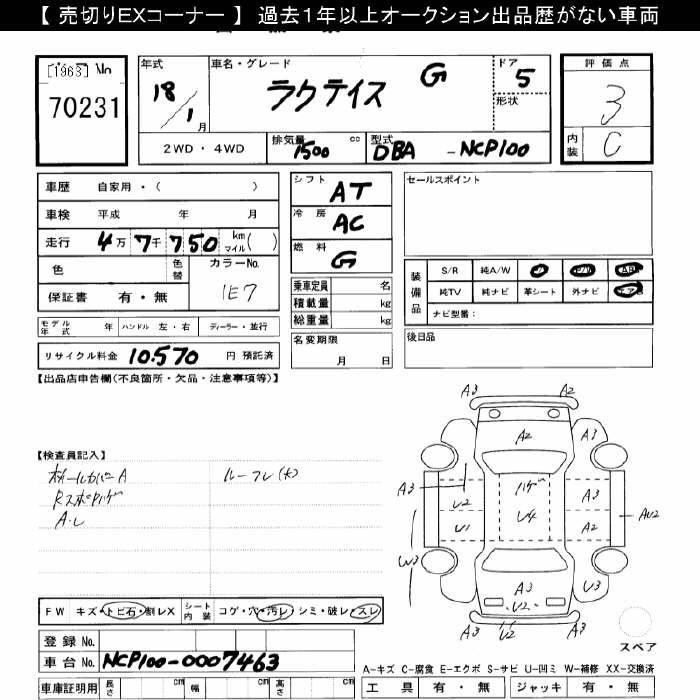 【 売切りEXコーナー 】 過去1年以上オークション出品歴がない車両
[1963] No
70231
年式
18/1月
車名・グレード
ラクティス G
ドア
5
形状
評価点
3
内装
C
2WD ・ 4WD
排気量
1500 cc
型式
DBA - NCP100
車歴 自家用・( )
車検 平成 年 月
走行 4万 7千 750 km マイル( )
色
色替
カラーNo.
1E7
保証書 有・無
モデル年式 年 ハンドル 左・右 ディーラー・並行
リサイクル料金 10.570 円 預託済
シフト AT
冷房 AC
燃料 G
乗車定員 名
積載量 kg
総重量 kg
名変期限
月 日
セールスポイント
装備品
S/R 純A/W
純TV 純ナビ 革シート 外ナビ
ナビ型番:
後日品
【出品店申告欄(不良箇所・欠品・注意事項等)】
【検査員記入】
ホイールカバーA
ルーフレ(大)
A3 A2
A2 A3
A3 U2 ハゲ A3
U1 U4 A2 AU2
W3
A3 U3
U2
U2
スペア
FW キズ・トビ石・割レX
シート内装 コゲ・穴・汚レ・シミ・破レ・スレ
登録 No.
車台 No. NCP100-0007463
車庫証明用 長さ cm 幅 cm 高さ cm
A-キズ C-腐食 E-エクボ S-サビ U-凹ミ W-補修 XX-交換済
工具 有・無 ジャッキ 有・無